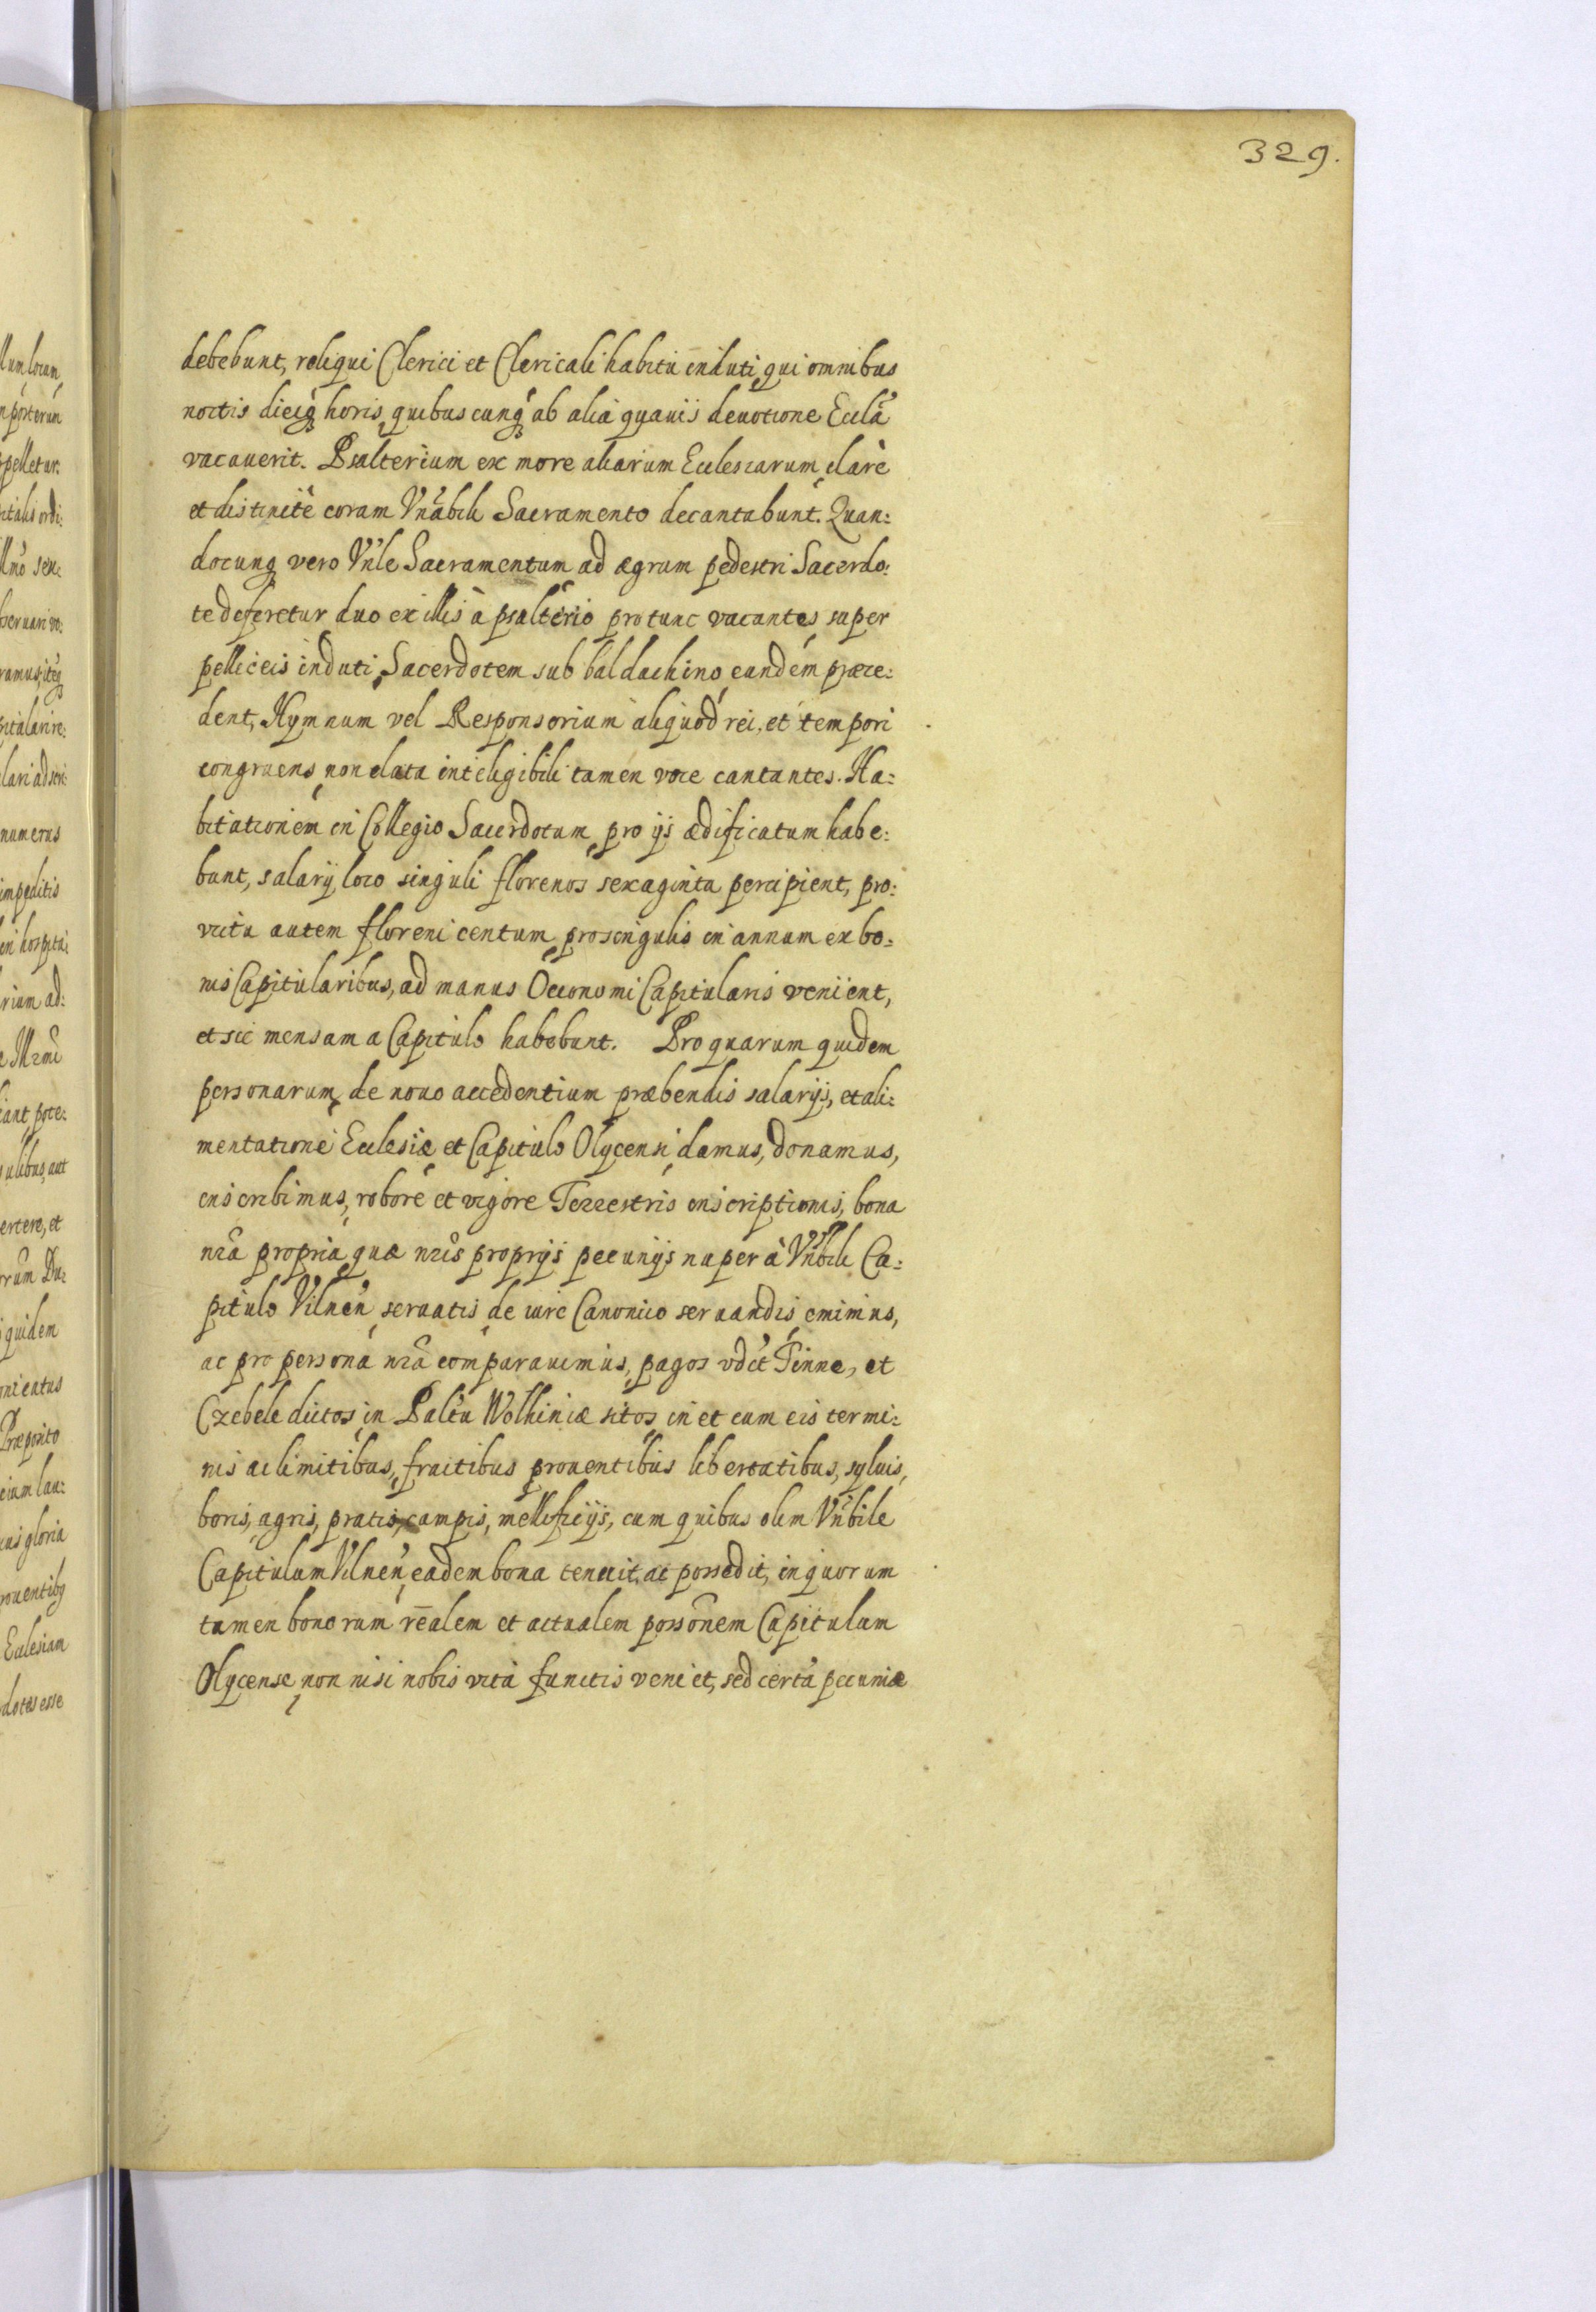 329.
debebunt, reliqui Clerici et Clericali habitu induti, qui omnibus
noctis dieiq₃ horis, quibuscunq₃ ab alia quauis deuotione Eccla
vacauerit. Psalterium ex more aliarum Ecclesiarum, clarè
et distinctè coram Vnabili Sacramento decantabunt. Quan:
docunq vero Vnle Sacramentum ad ægrum pedestri Sacerdo:
te deferetur duo ex illis à psalterio pro tunc vacantes, super
pelliceis induti, Sacerdotem sub baldachino, eundem præce:
dent, Hymnum vel Responsorium aliquod rei, et tempori
congruens, non elata inteligibili tamen voce cantantes. Ha:
bitationem in Collegio Sacerdotum, pro ijs ædificatum habe:
bunt, salarij loco singuli florenos sexaginta percipient, pro:
victu autem floreni centum, pro singulis in annum ex bo:
nis Capitularibus, ad manus Oeconomi Capitularis venient,
et sic mensam a Capitulo habebunt. Pro quarum quidem
personarum, de nouo accedentium præbendis salarijs, et ali:
mentatione Ecclesiæ et Capitulo Olycensi, damus, donamus,
inscribimus, robore et vigore Terrestris inscriptionis, bona
nrâ propria, quæ nris proprijs pecunijs nuper à Vnbili Ca:
pitulo Vilnen, seruatis, de iure Canonico seruandis, emimus,
ac pro persona nrâ comparauimus, pagos vdct Tinne, et
Czebele dictos, in Paltu Wolhiniæ sitos, in et cum eis termi:
nis ac limitibus, fructibus prouentibus libertatibus, syluis,
boris, agris, pratis, campis, mellificijs, cum quibus olim Vnbile
Capitulum Vilnen, eadem bona tenuit, ac possedit, in quorum
tamen bonorum realem et actualem possonem Capitulum
Olycense, non nisi nobis vità functis veniet, sed certà pecuniæ